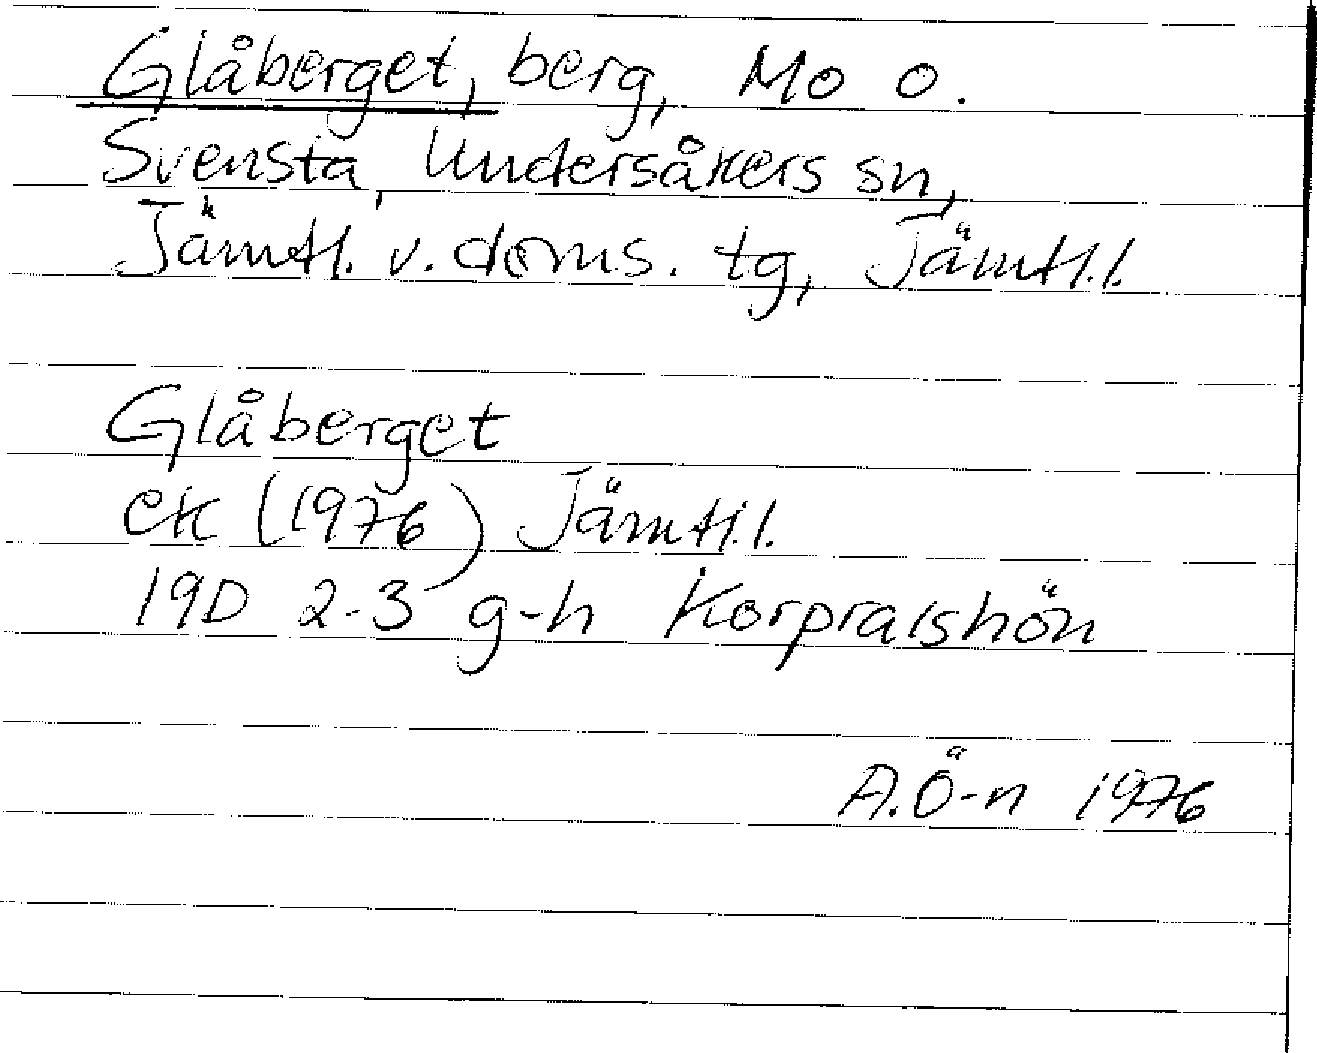 Glåberget, berg, Mo o.
Svensta, Undersåkers sn,
Jämtl. v. doms. tg, Jämtl.l.
Glåberget
ek (1976) Jämtl.l.
19D 2-3 g-h Korpralshön
A.Ö-n 1976